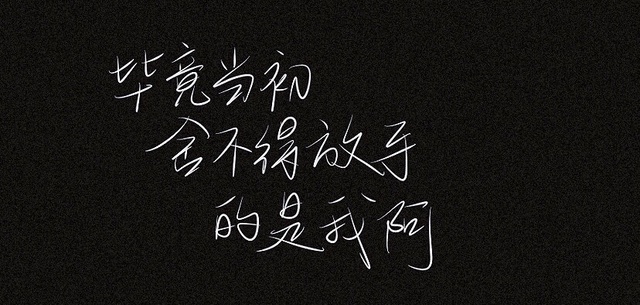 毕竟当初
舍不得放手
的是我阿